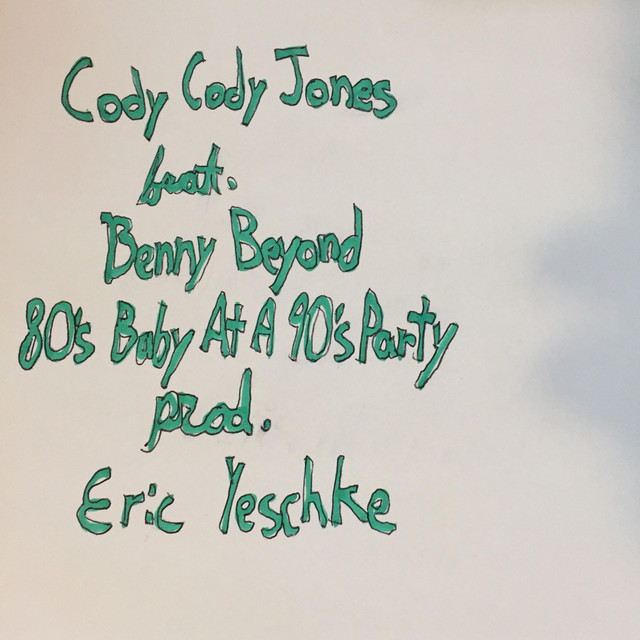 Cody Cody Jones
feat.
Benny Beyond
80's Baby At A 90's Party
prod.
Eric Yeschke